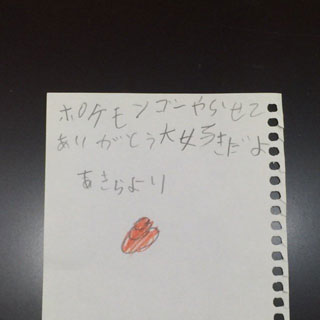 ポケモンゴーやらせて
ありがとう大好きだよ
あきらより